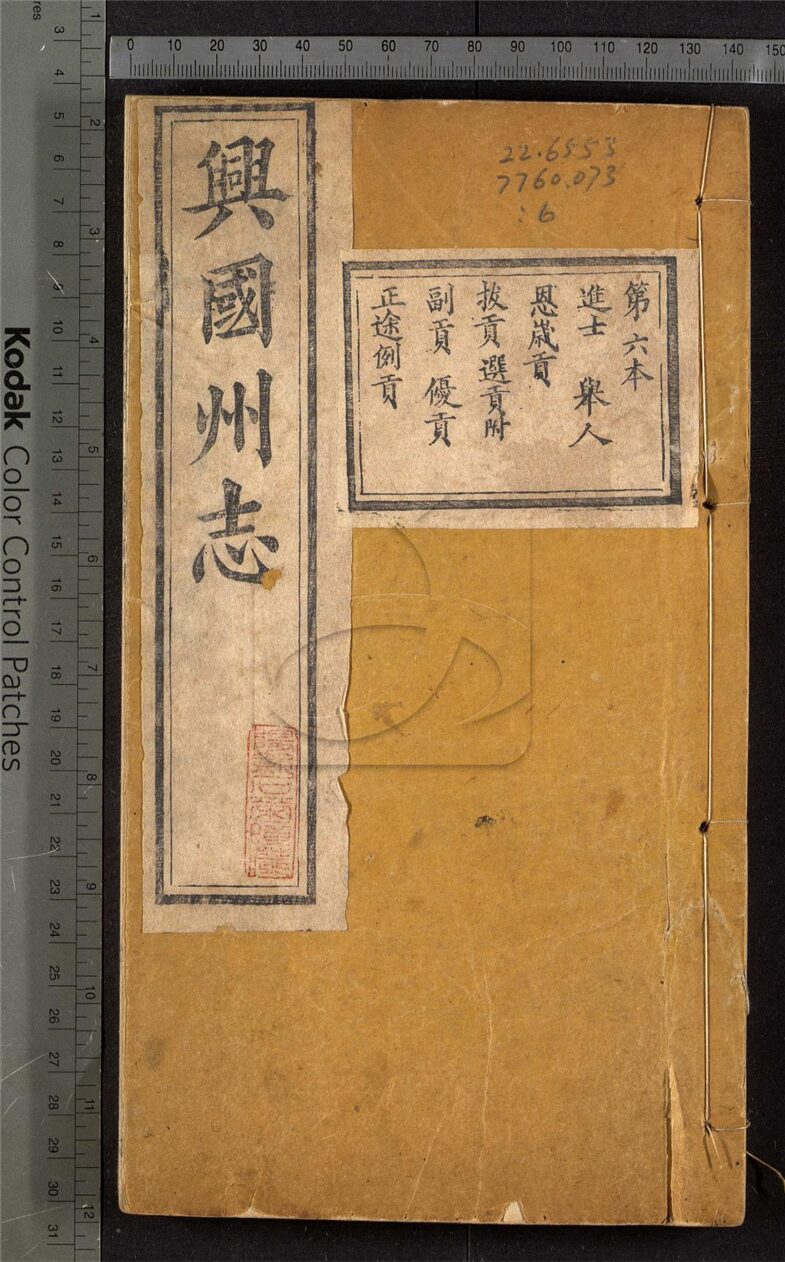 興國州志
第六本
進士 舉人
恩歲貢
拔貢 選貢附
副貢 優貢
正途例貢
22.6553
7760.073
:6
Kodak Color Control Patches
0 10 20 30 40 50 60 70 80 90 100 110 120 130 140 150
3 4 5 6 7 8 9 10 11 12 13 14 15 16 17 18 19 20 21 22 23 24 25 26 27 28 29 30 31
1 2 3 4 5 6 7 8 9 10 11 12